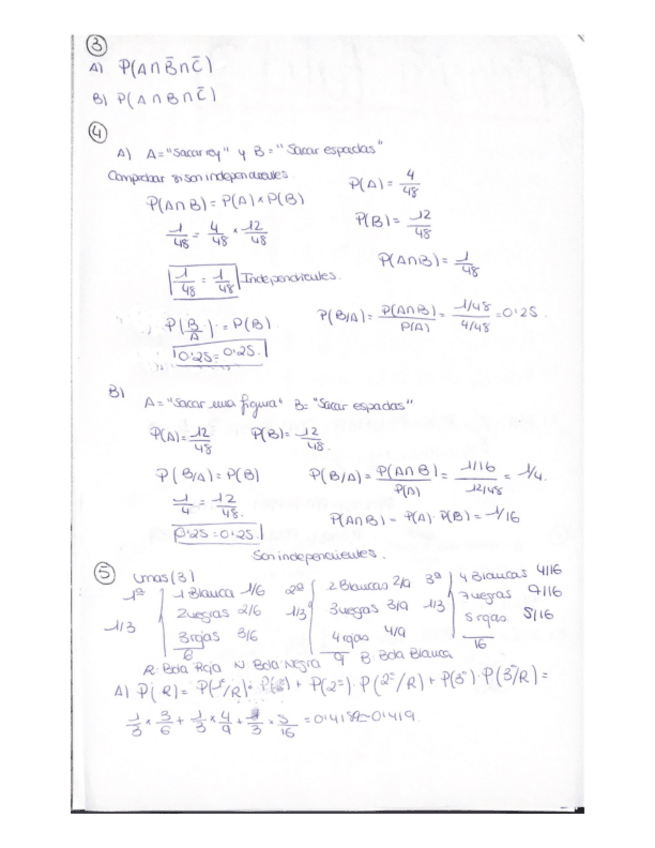 3
A) P(A∩B̄∩C̄)
B) P(A∩B∩C̄)
4
A) A="Sacar rey" y B="Sacar espadas"
Comprobar si son independientes.
P(A)= 4/48
P(A∩B)=P(A)×P(B)
P(B)= 12/48
1/48 = 4/48 × 12/48
P(A∩B)= 1/48
1/48 = 1/48 Independientes.
P(B/A)=P(B)
P(B/A)= P(A∩B)/P(A) = 1/48 / 4/48 = 0'25.
0'25=0'25.
B)
A="Sacar una figura" B="Sacar espadas"
P(A)= 12/48 P(B)= 12/48.
P(B/A)=P(B) P(B/A)= P(A∩B)/P(A) = 1/16 / 12/48 = 1/4.
1/4 = 12/48.
P(A∩B)=P(A)·P(B)=1/16
0'25=0'25.
Son independientes.
5 Urnas(3)
1ª 1/3 1 Blanca 1/6 2 negras 2/6 3 rojas 3/6 6
2ª 1/3 2 Blancas 2/9 3 negras 3/9 4 rojas 4/9 9
3ª 1/3 4 Blancas 4/16 7 negras 7/16 5 rojas 5/16 16
R=Bola Roja N=Bola Negra B=Bola Blanca
A) P(R)= P(1ª/R)· + P(2ª)·P(2ª/R)+P(3ª)·P(3ª/R)=
1/3 × 3/6 + 1/3 × 4/9 + 1/3 × 5/16 =0'4189=0'419.